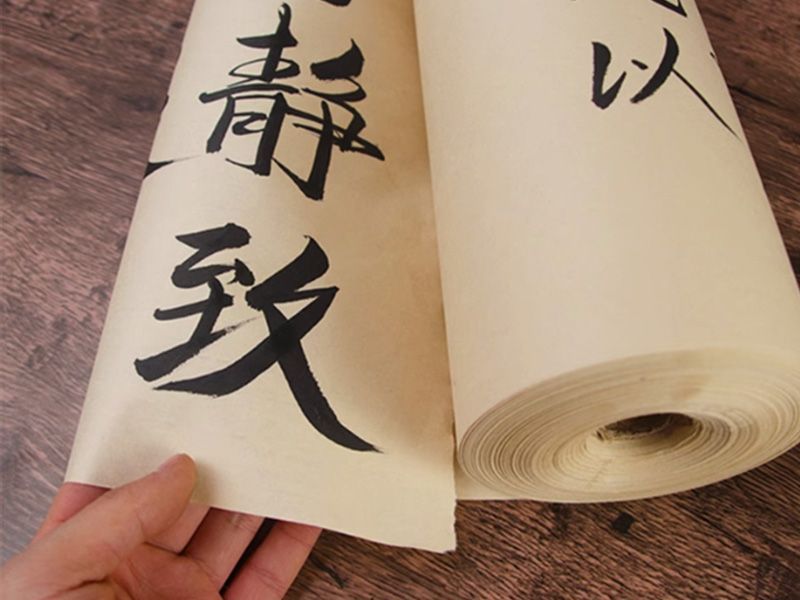 以
静致